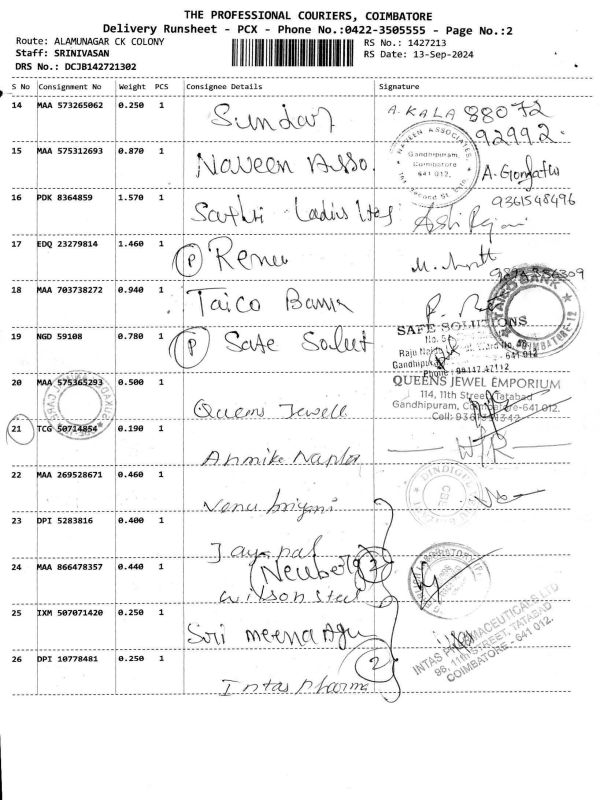 THE PROFESSIONAL COURIERS, COIMBATORE
Delivery Runsheet - PCX - Phone No.:0422-3505555 - Page No.:2
Route: ALAMUNAGAR CK COLONY RS No.: 1427213
Staff: SRINIVASAN RS Date: 13-Sep-2024
DRS No.: DCJB142721302
S No Consignment No Weight PCS Consignee Details Signature
14 MAA 573265062 0.250 1 Sundar A. KALA 88072
92992
15 MAA 575312693 0.870 1 Naveen Asso.
NAVEEN ASSOCIATES
Gandhipuram,
Coimbatore
641 012.
16 PDK 8364859 1.570 1 Sathri Ladies 9361548496
17 EDQ 23279814 1.460 1 P Renu
18 MAA 703738272 0.940 1 Taico Bank
TAICO BANK
COIMBATORE-12
19 NGD 59108 0.780 1 P Safe Solut
SAFE SOLUTIONS
Gandhipuram
641 012
Phone
20 MAA 575365293 0.500 1 Queens Jewell
QUEENS JEWEL EMPORIUM
114, 11th Street, Tatabad
Gandhipuram, Coimbatore-641 012.
21 TCG 50714854 0.190 1
22 MAA 269528671 0.460 1 Venu briyani
DINDIGUL
23 DPI 5283816 0.400 1 Jayapal
24 MAA 866478357 0.440 1 (Neuberg 2
Wilson Steel
25 IXM 507071420 0.250 1 Sri meena Agu
26 DPI 10778481 0.250 1 2
Intas pharma
INTAS PHARMACEUTICALS LTD
96, 11th STREET, TATABAD
COIMBATORE - 641 012.